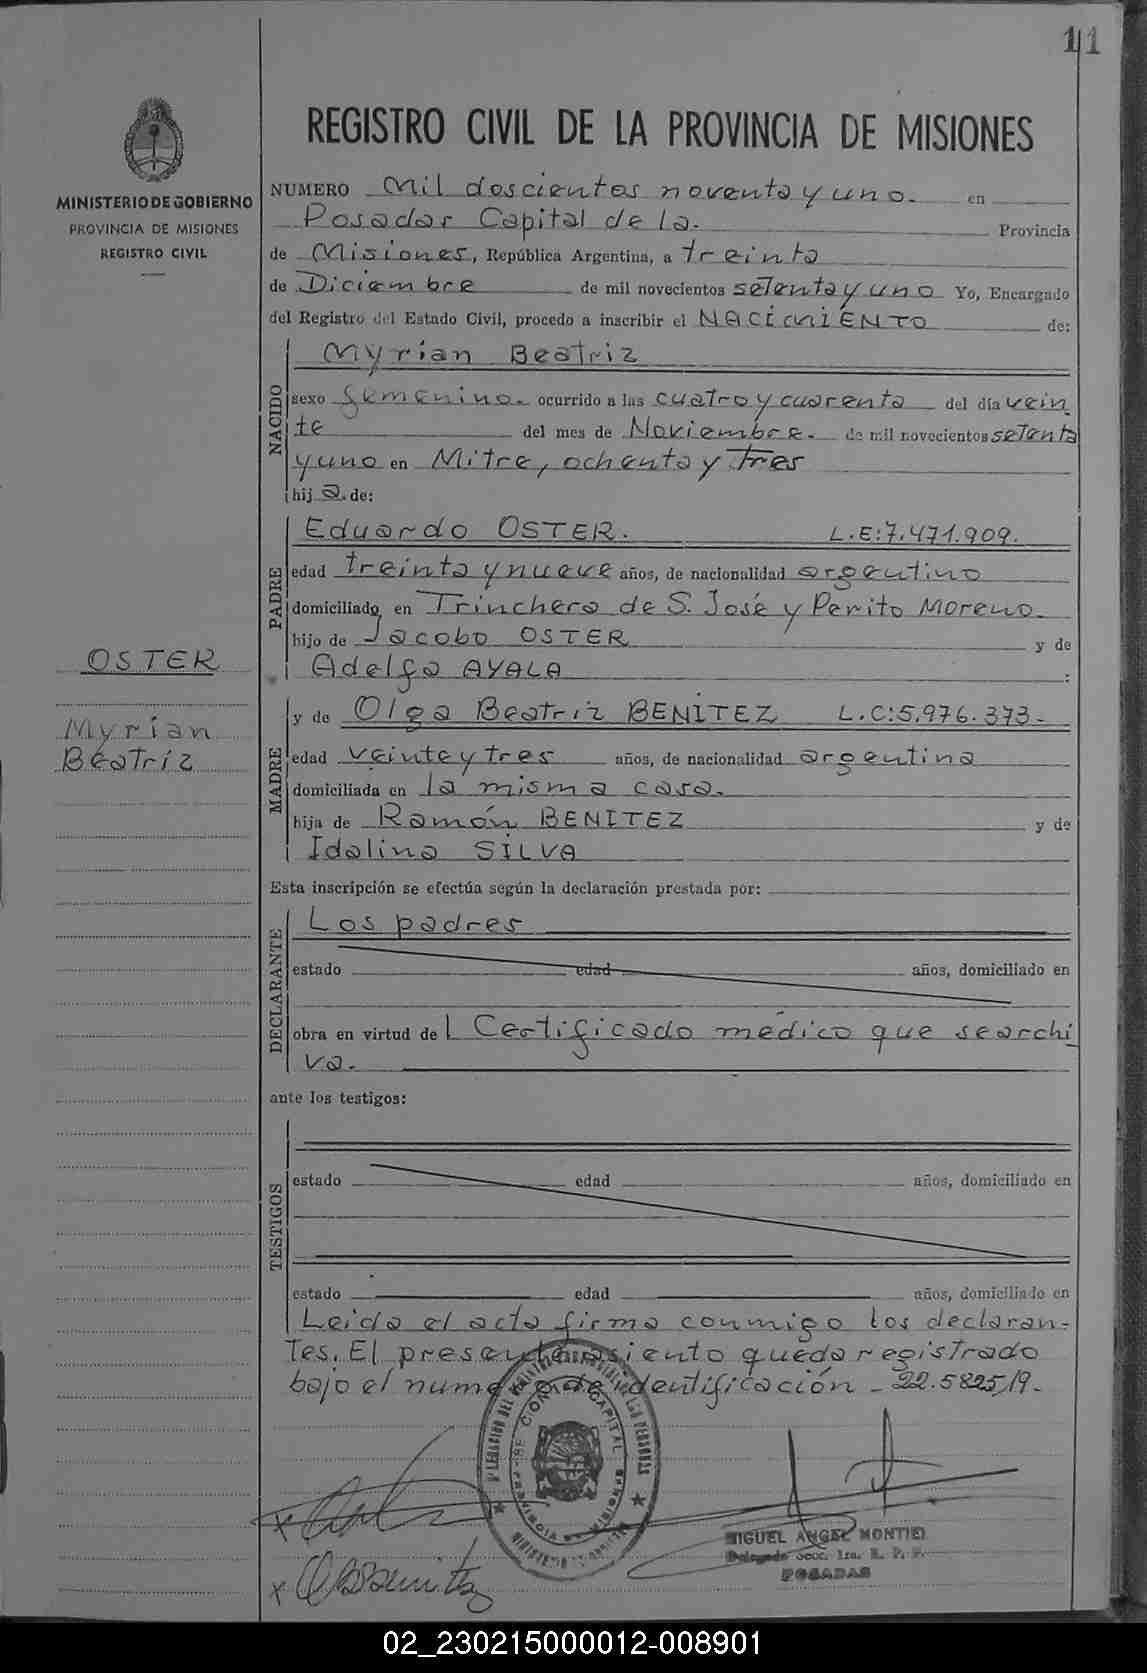 11
REGISTRO CIVIL DE LA PROVINCIA DE MISIONES
MINISTERIO DE GOBIERNO
PROVINCIA DE MISIONES
REGISTRO CIVIL
NUMERO Mil doscientos noventa y uno. en
Posadas Capital de la. Provincia
de Misiones, República Argentina, a treinta
de Diciembre de mil novecientos setenta y uno Yo, Encargado
del Registro del Estado Civil, procedo a inscribir el NACIMIENTO de:
NACIDO
Myrian Beatriz
sexo femenino. ocurrido a las cuatro y cuarenta del día vein
te del mes de Noviembre. de mil novecientos setenta
y uno en Mitre, ochenta y tres
hija. de:
PADRE
Eduardo OSTER. L.E:7.471.909.
edad treinta y nueve años, de nacionalidad argentino
domiciliado en Trinchera de S. José y Perito Moreno.
hijo de Jacobo OSTER y de
Adelfa AYALA :
OSTER
Myrían
Beatríz
MADRE
y de Olga Beatriz BENITEZ L.C:5.976.373-
edad veinte y tres años, de nacionalidad argentina
domiciliada en la misma casa.
hija de Ramón BENITEZ y de
Idalina SILVA
Esta inscripción se efectúa según la declaración prestada por:
DECLARANTE
Los padres
estado edad años, domiciliado en
obra en virtud del Certificado médico que se archi
va.
ante los testigos:
TESTIGOS
estado edad años, domiciliado en
estado edad años, domiciliado en
Leida el acta firma conmigo los declaran-
tes. El presente asiento queda registrado
bajo el numero de identificación - 22.582519.
CAPITAL
x
x OBBenitez
MIGUEL ANGEL MONTIEL
Delegado Secc. 1ra. R. P. P.
POSADAS
02_230215000012-008901